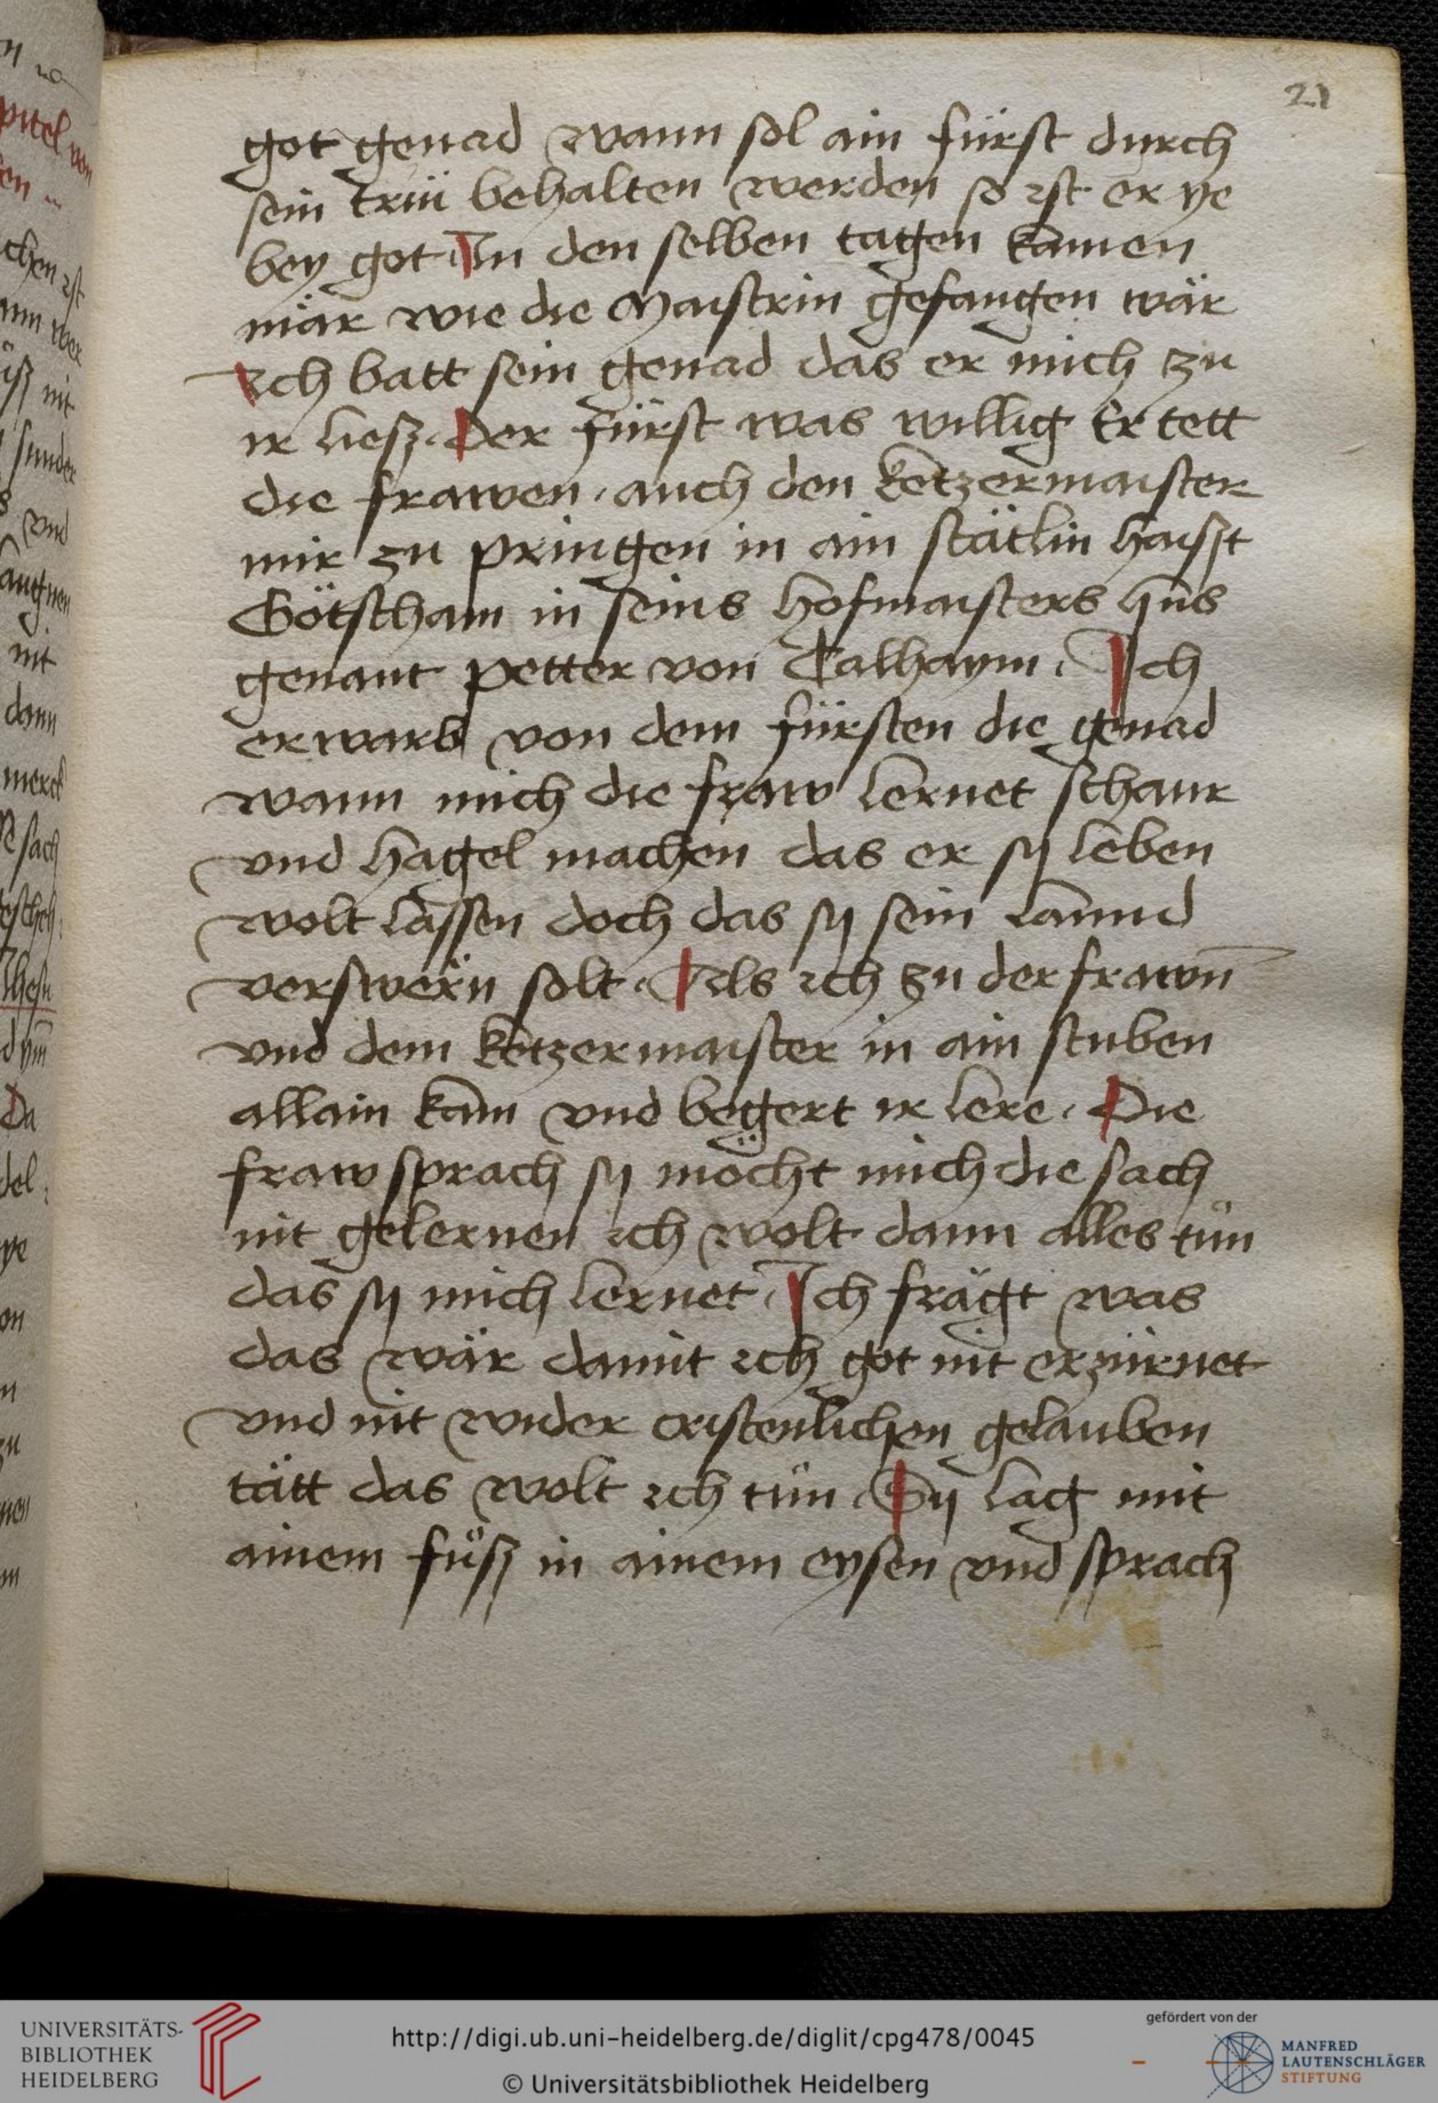 21
got genad wann sol ain fürst durch
sein trüi behalten werden so ist er ye
bey got. In den selben tagen kamen
mär wie die Maistrin gefangen wär
Ich batt sein genad das er mich zu
ir liesz. Der fürst was willig Er tett
die frawen, auch den ketzermaister
mir zu pringen in ain stätlin haisst
Götscham in seins hofmaisters hus
genant petter von Talhaym. Ich
erwarb von dem fürsten die genad
wann mich die fraw lernet schaur
vnd hagel machen das er sy leben
wolt lassen doch das sy sein lannd
verswern solt. Als ich zu der frawn̄
vnd dem ketzermaister in ain stuben
allain kam vnd begert ir lere. Die
fraw sprach sy möcht mich die sach
nit gelernen ich wolt dann alles tůn
das sy mich lernet, Ich frägt was
das wär damit ich got nit erzürnet
vnd nit wider cristenlichen gelauben
tätt das wolt ich tůn. Sy lag mit
ainem fůsz in ainem eysen vnd sprach
UNIVERSITÄTS-
BIBLIOTHEK
HEIDELBERG
http://digi.ub.uni-heidelberg.de/diglit/cpg478/0045
© Universitätsbibliothek Heidelberg
gefördert von der
MANFRED
LAUTENSCHLÄGER
STIFTUNG